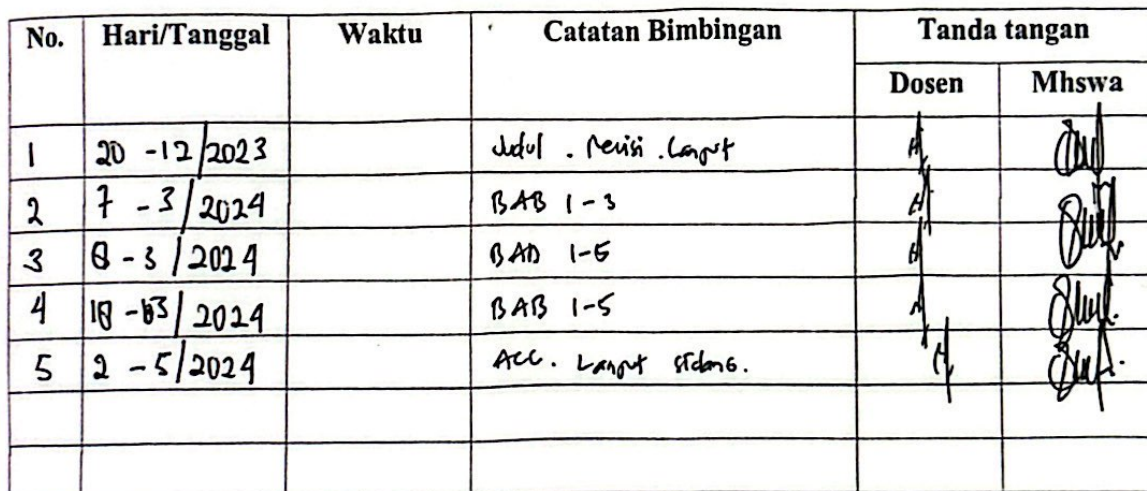 No. Hari/Tanggal Waktu Catatan Bimbingan Tanda tangan
Dosen Mhswa
1 20 - 12/2023 Judul . Revisi . Lanjut
2 7 - 3/2024 BAB 1 - 3
3 8 - 3/2024 BAB 1-5
4 18 - 03/2024 BAB 1-5
5 2 - 5/2024 ACC. Lanjut sidang.